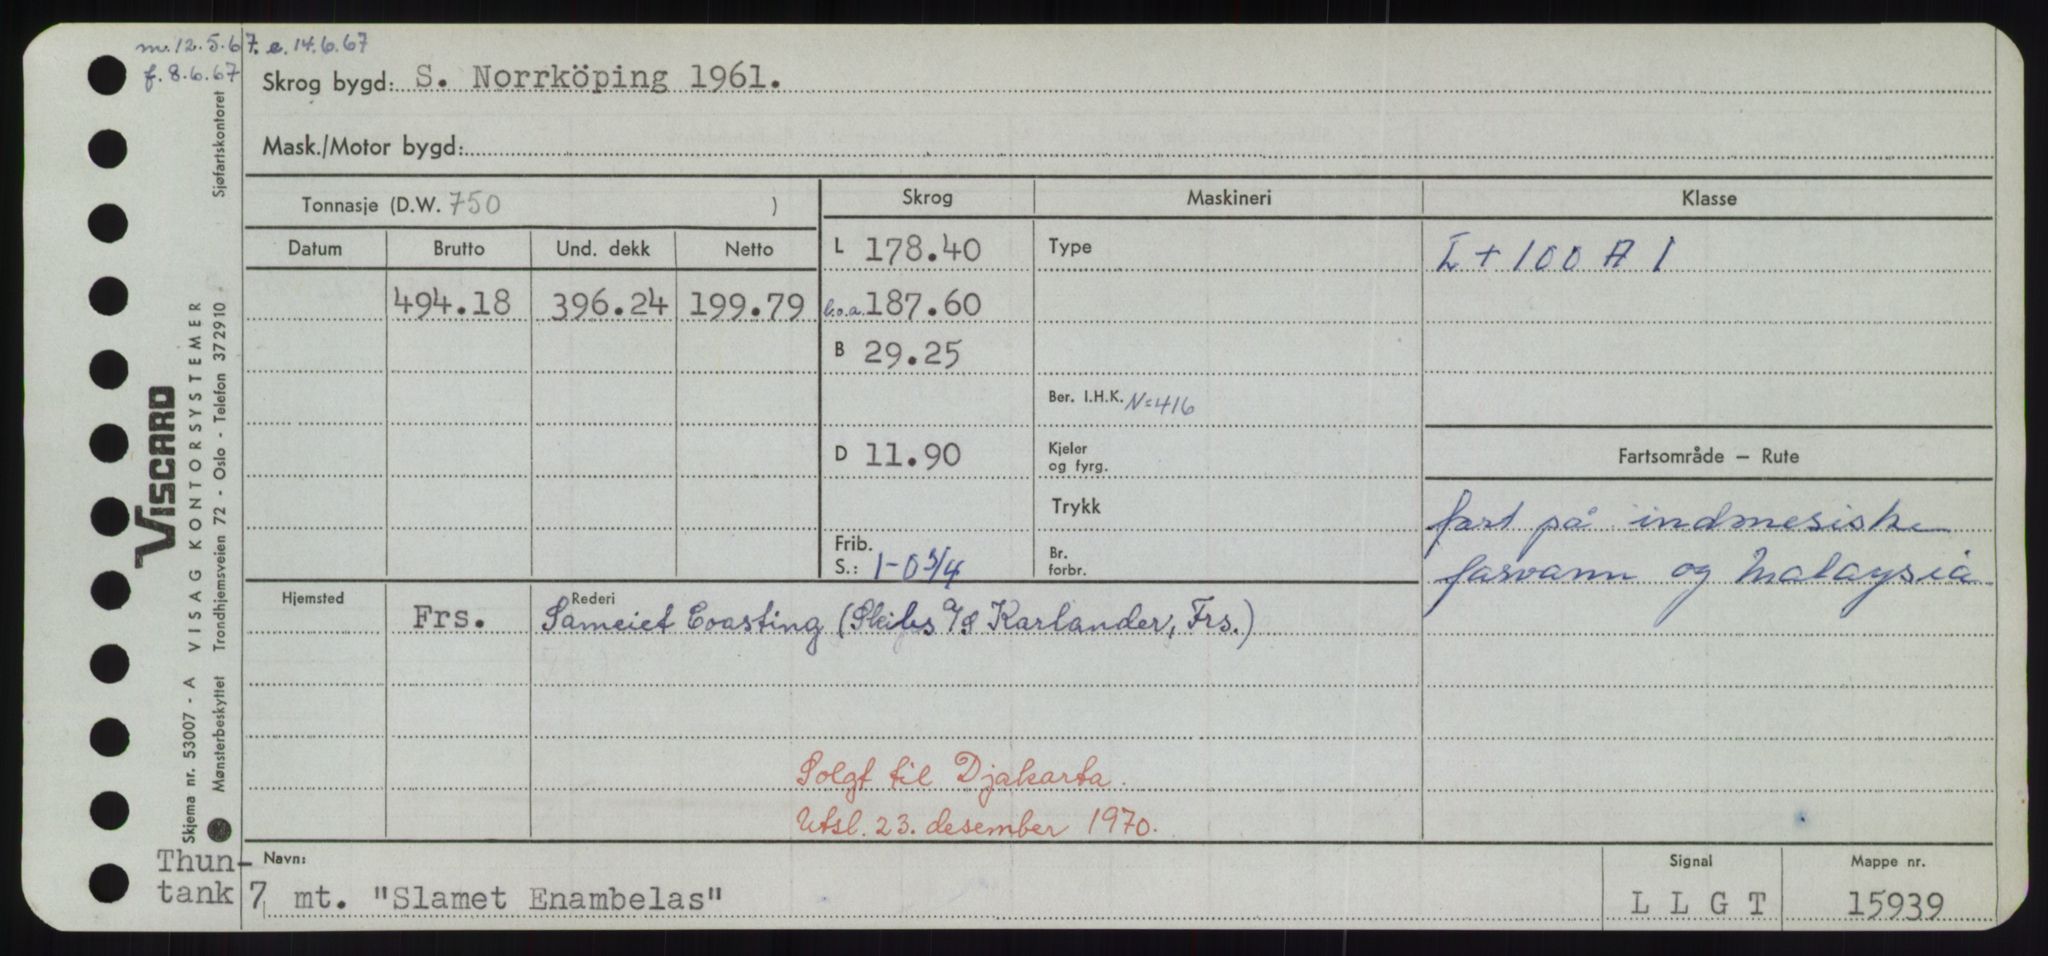 m. 12.5.67. e. 14.6.67
f. 8.6.67
Skrog bygd: S. Norrköping 1961.
Mask./Motor bygd:
Tonnasje (D.W. 750 )
Skrog Maskineri Klasse
Datum Brutto Und. dekk Netto
L 178.40 Type
I + 100 A 1
494.18 396.24 199.79
l.o.a. 187.60
B 29.25
Ber. I.H.K. N=416
D 11.90
Kjeler og fyrg.
Fartsområde – Rute
Trykk
fart på indonesiske
farvann og Malaysia
Frib. S.: 1-0 3/4
Br. forbr.
Hjemsted Rederi
Frs. Sameiet Coasting (Skibs A/S Karlander, Frs.)
Solgt til Djakarta.
Utsl. 23. desember 1970.
Navn: Signal Mappe nr.
Thun-
tank 7 mt. "Slamet Enambelas" L L G T 15939
VISCARD
Skjema nr. 53007 - A VISAG KONTORSYSTEMER
Mønsterbeskyttet Trondhjemsveien 72 - Oslo - Telefon 372910 Sjøfartskontoret